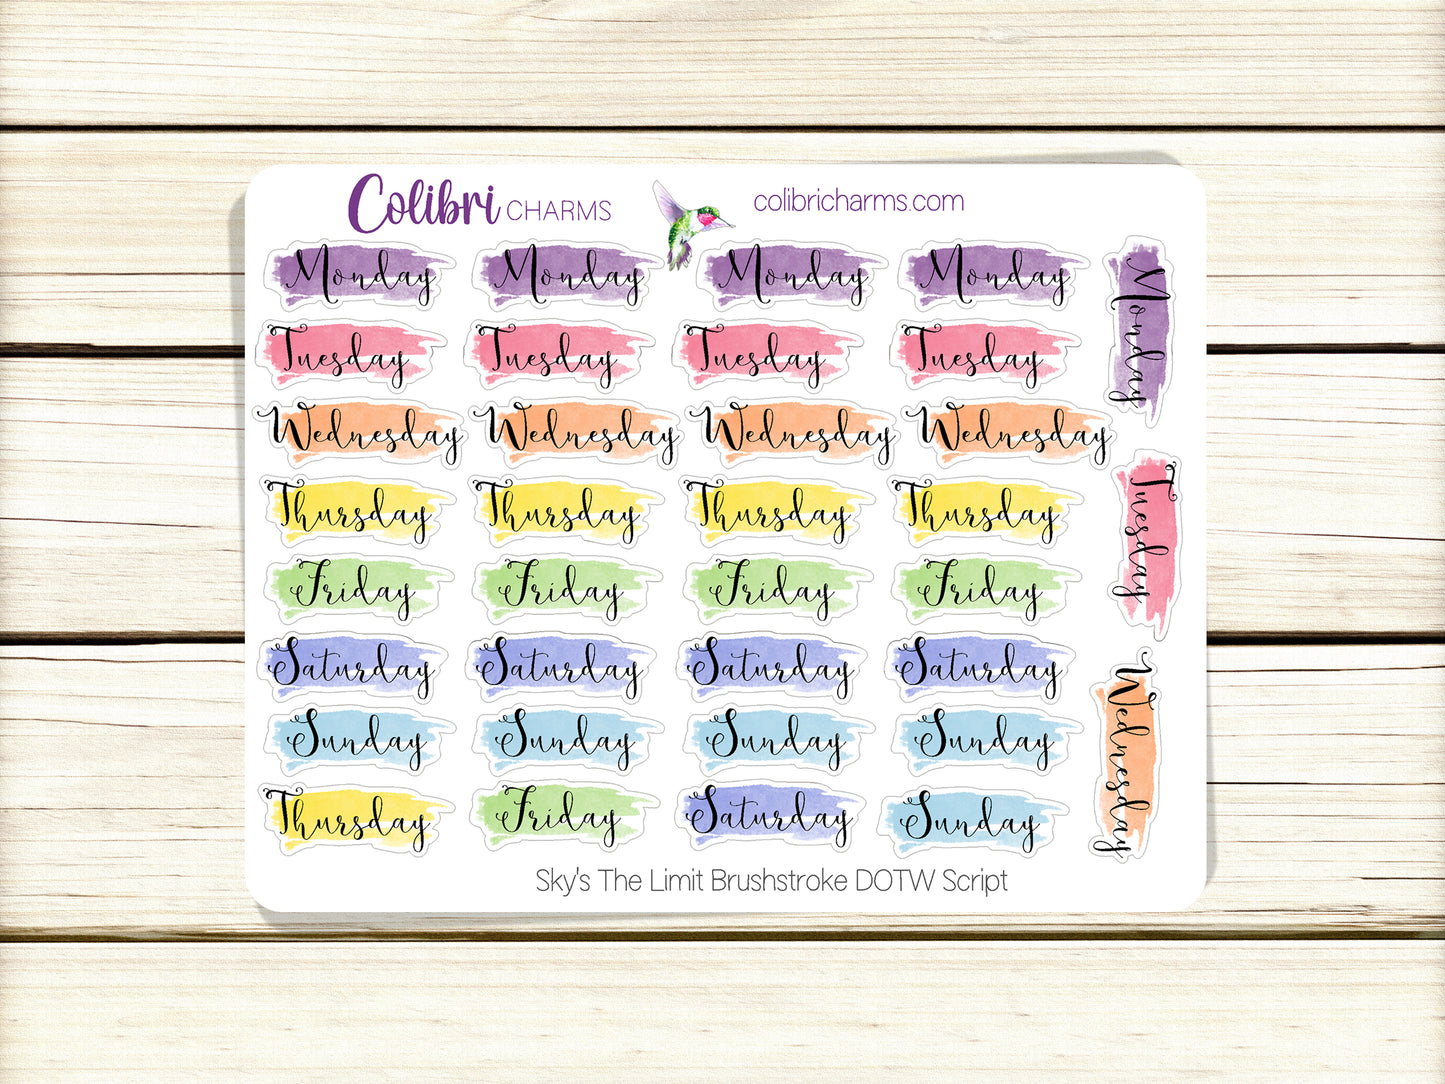 Colibri CHARMS
colibricharms.com
Monday Monday Monday Monday
Monday
Tuesday Tuesday Tuesday Tuesday
Wednesday Wednesday Wednesday Wednesday
Tuesday
Thursday Thursday Thursday Thursday
Friday Friday Friday Friday
Saturday Saturday Saturday Saturday
Wednesday
Sunday Sunday Sunday Sunday
Thursday Friday Saturday Sunday
Sky's The Limit Brushstroke DOTW Script